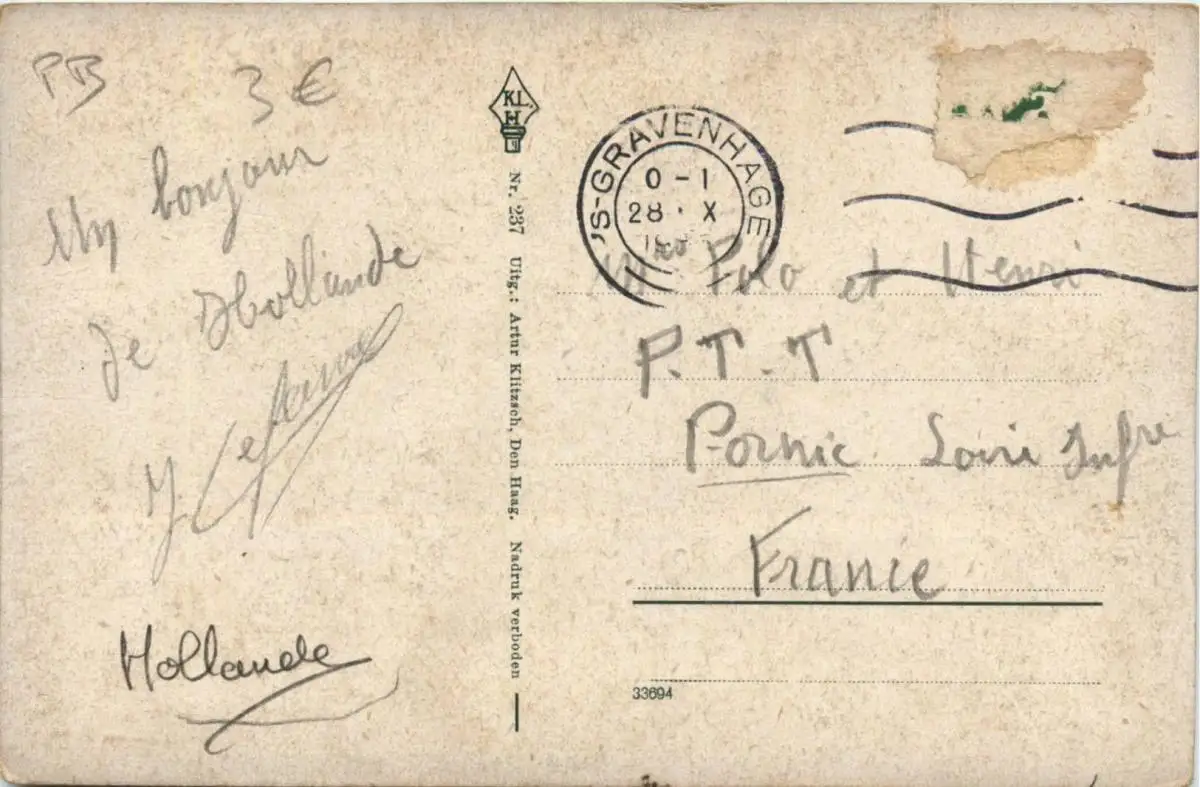 PB
3 €
Un bonjour
de Hollande
J. Lefeuvre
Hollande
KL.
H.
Nr. 237 Uitg.: Artur Klitzsch, Den Haag. Nadruk verboden
'S-GRAVENHAGE
0 - 1
28 · X
Polo et Henri
P.T.T
Pornic Loire Infre
France
33694